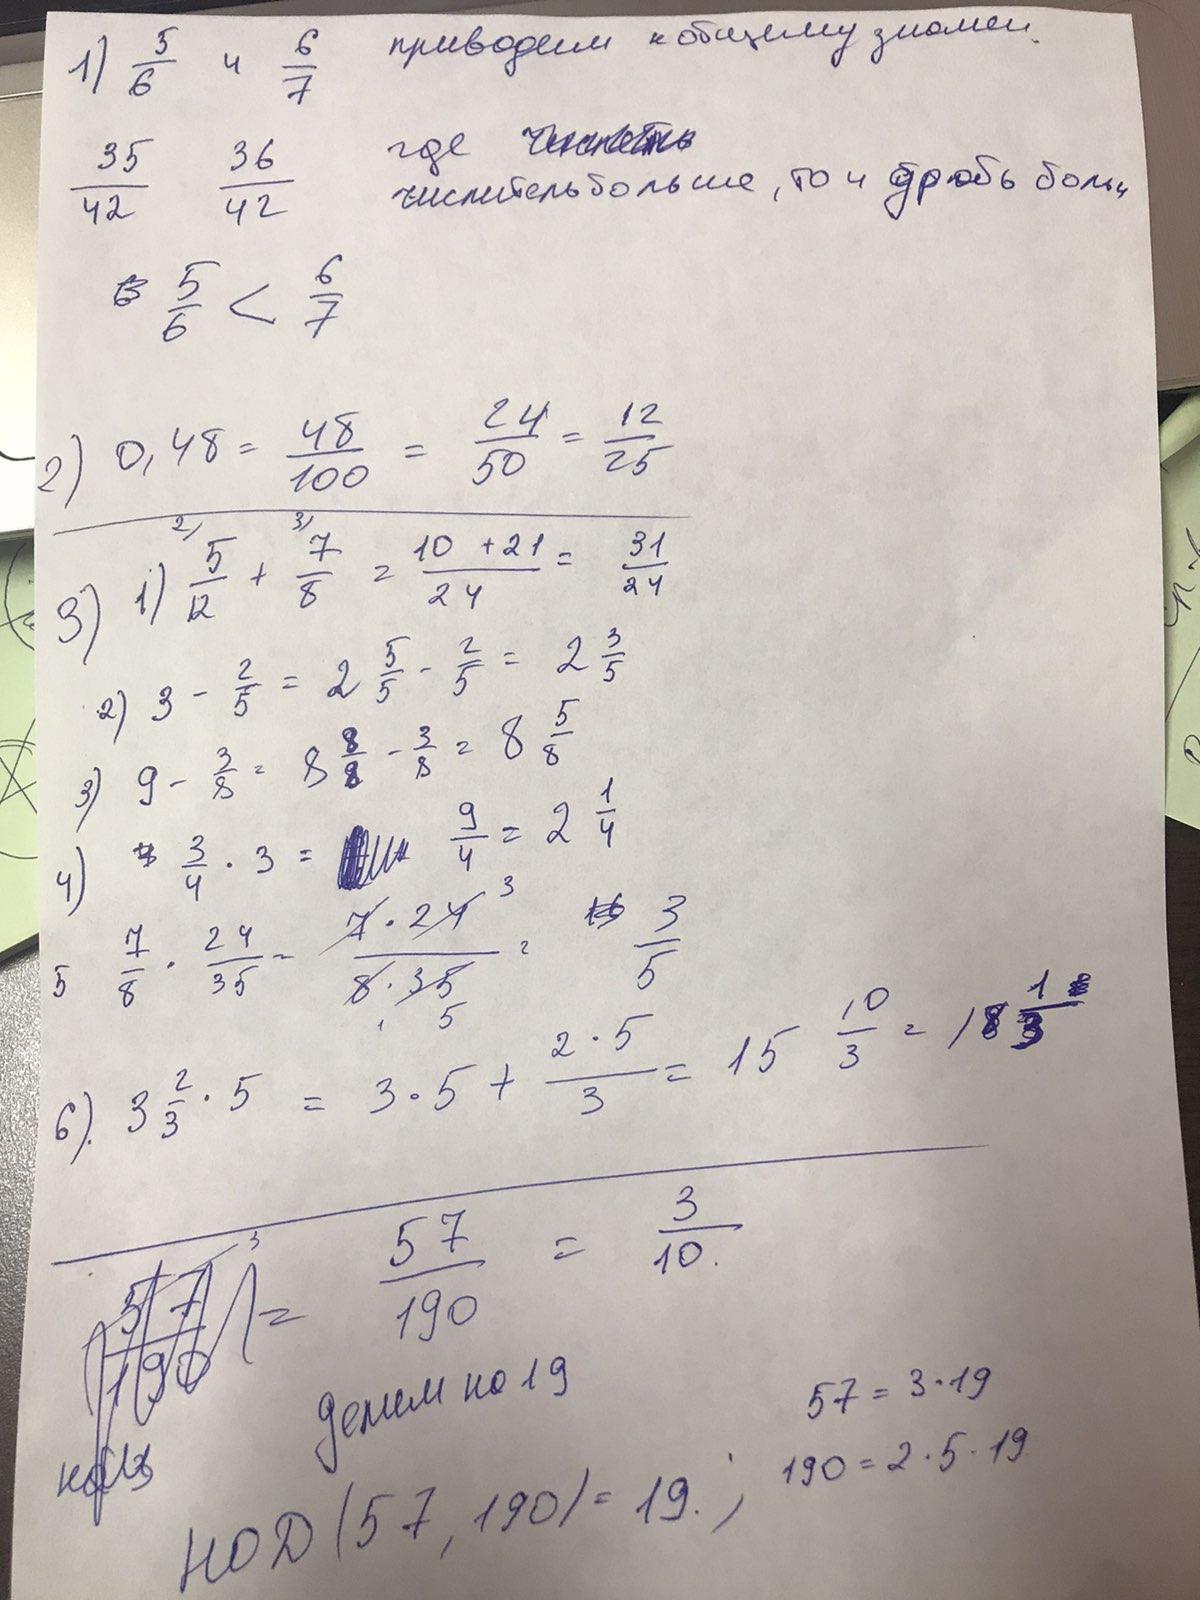 1) 5/6 и 6/7 приводим к общему знамен.
35/42 36/42 где
числитель больше, то и дробь больш
5/6 < 6/7
2) 0,48 = 48/100 = 24/50 = 12/25
3) 1) 2) 5/12 + 3) 7/8 = 10 + 21/24 = 31/24
2) 3 - 2/5 = 2 5/5 - 2/5 = 2 3/5
3) 9 - 3/8 = 8 8/8 - 3/8 = 8 5/8
4) 3/4 · 3 = 9/4 = 2 1/4
5 7/8 · 24/35 = 7 · 24 3/8 · 35 5 = 3/5
6). 3 2/3 · 5 = 3 · 5 + 2 · 5/3 = 15 10/3 = 18 1/3
57/190 3 = 57/190 = 3/10.
делим на 19
57 = 3 · 19
190 = 2 · 5 · 19
НОД (57, 190) = 19. ;